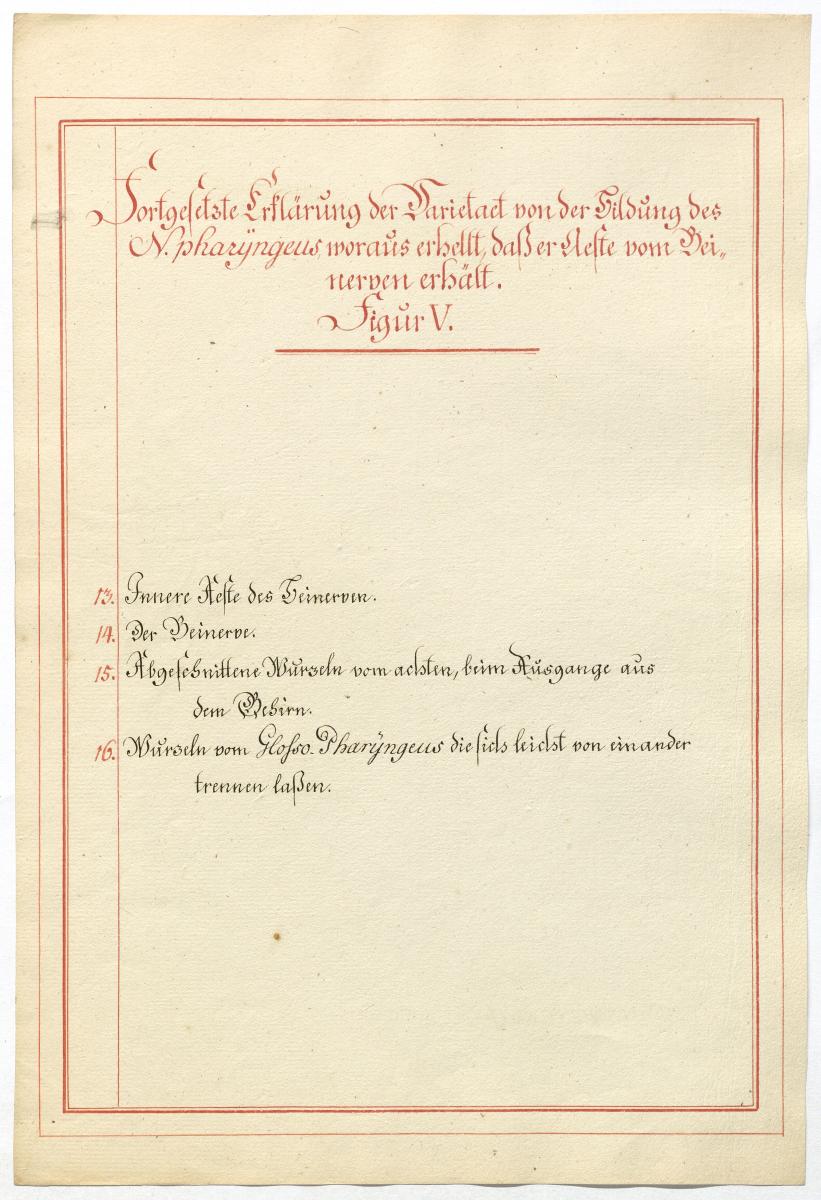 Fortgesetzte Erklärung der Varietaet von der Bildung des
N. pharÿngeus, woraus erhellt, daß er Aeste vom Bei„
nerven erhält.
Figur V.
13. Innere Aeste des Beinerven.
14. Der Beinerve.
15. Abgeschnittene Wurzeln vom achten, beim Ausgange aus
dem Gehirn.
16. Wurzeln vom Glosso-Pharÿngeus die sich leicht von einander
trennen laßen.